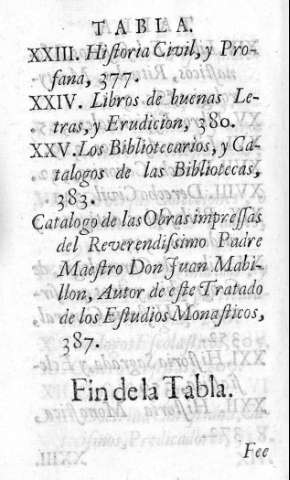 TABLA.
XXIII. Historia Civil, y Pro-
fana, 377.
XXIV. Libros de buenas Le-
tras, y Erudicion, 380.
XXV. Los Bibliotecarios, y Ca-
talogos de las Bibliotecas,
383.
Catalogo de las Obras impressas
del Reverendissimo Padre
Maestro Don Juan Mabi-
llon, Autor de este Tratado
de los Estudios Monasticos,
387.
Fin de la Tabla.
Fee